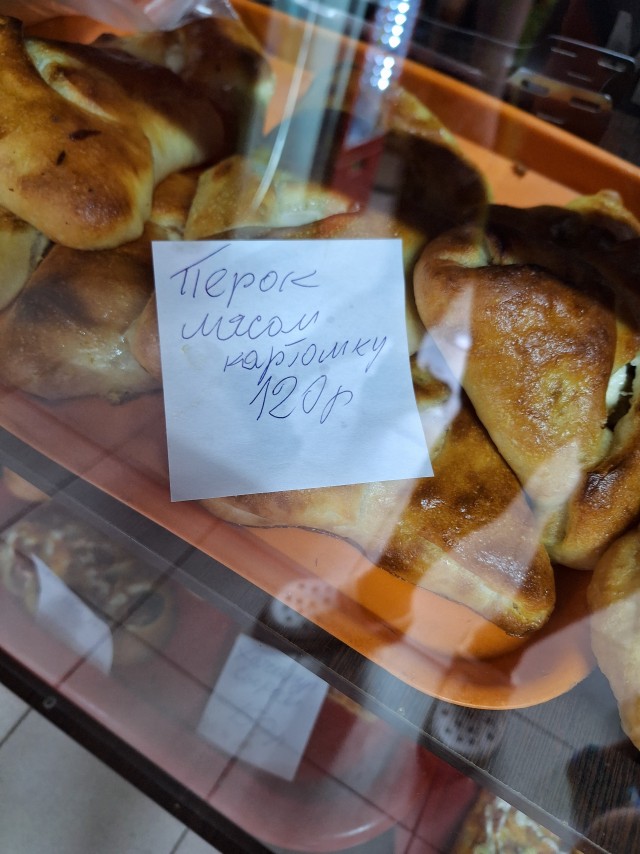 Перок
мясом
картошку
120р